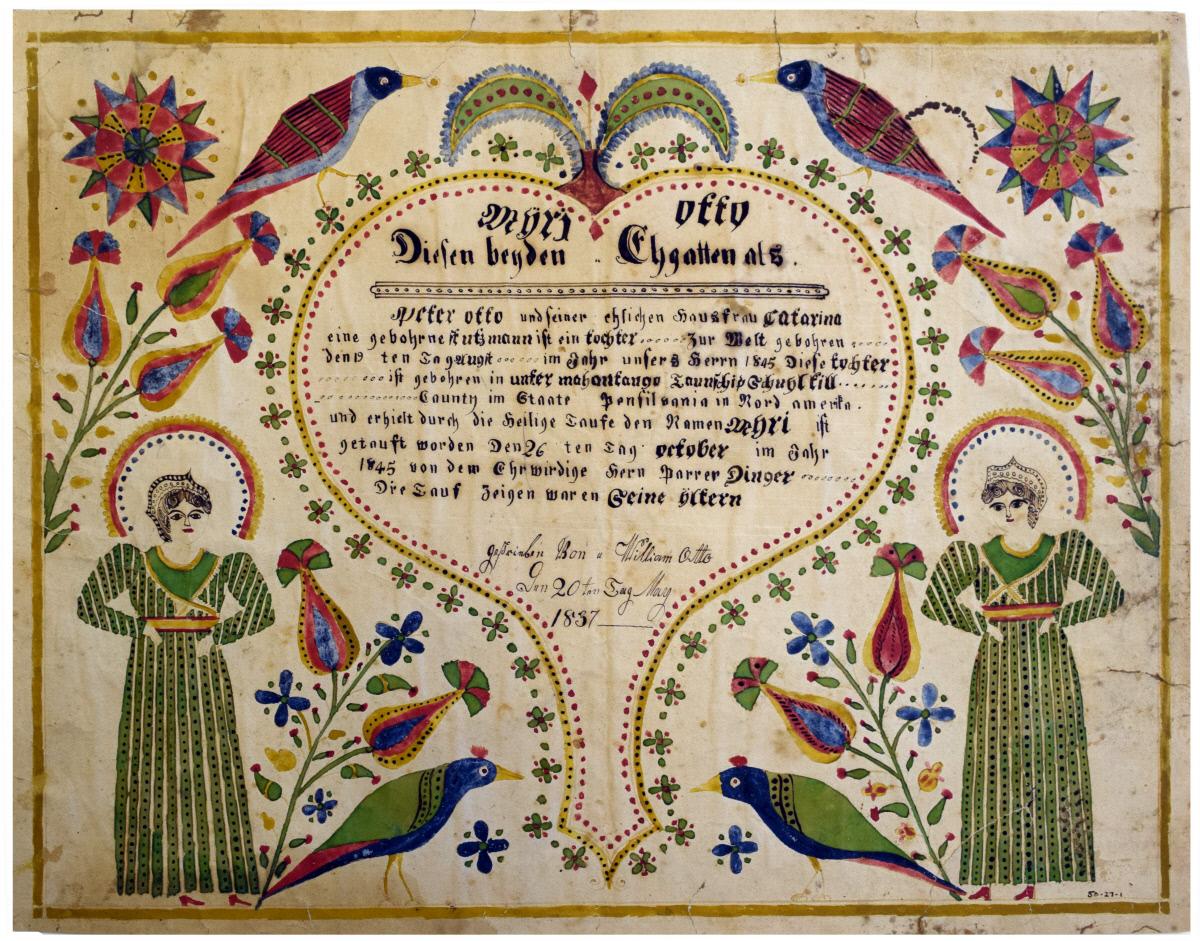 Myri Otto
Diesen beyden Ehgatten als.
Peter otto und seiner ehlichen Hausfrau Catarina
eine gebohrne stutzmann ist ein tochter Zur Welt gebohren
den 19 ten Tag august im Jahr unsers Herrn 1845 Diese tochter
ist gebohren in unter mahantango Taunschip Schuhlkill
County im Staate Pensilvania in Nord amerka.
und erhielt durch die Heilige Taufe den Namen Myri ist
getauft worden Den 26 ten Tag october im Jahr
1845 von dem Ehrwirdige Hern Parrer Dinger
Die Tauf Zeigen waren Seine ältern
geschrieben Von William Otto
Den 20 ten Tag May
1837
50-27-1